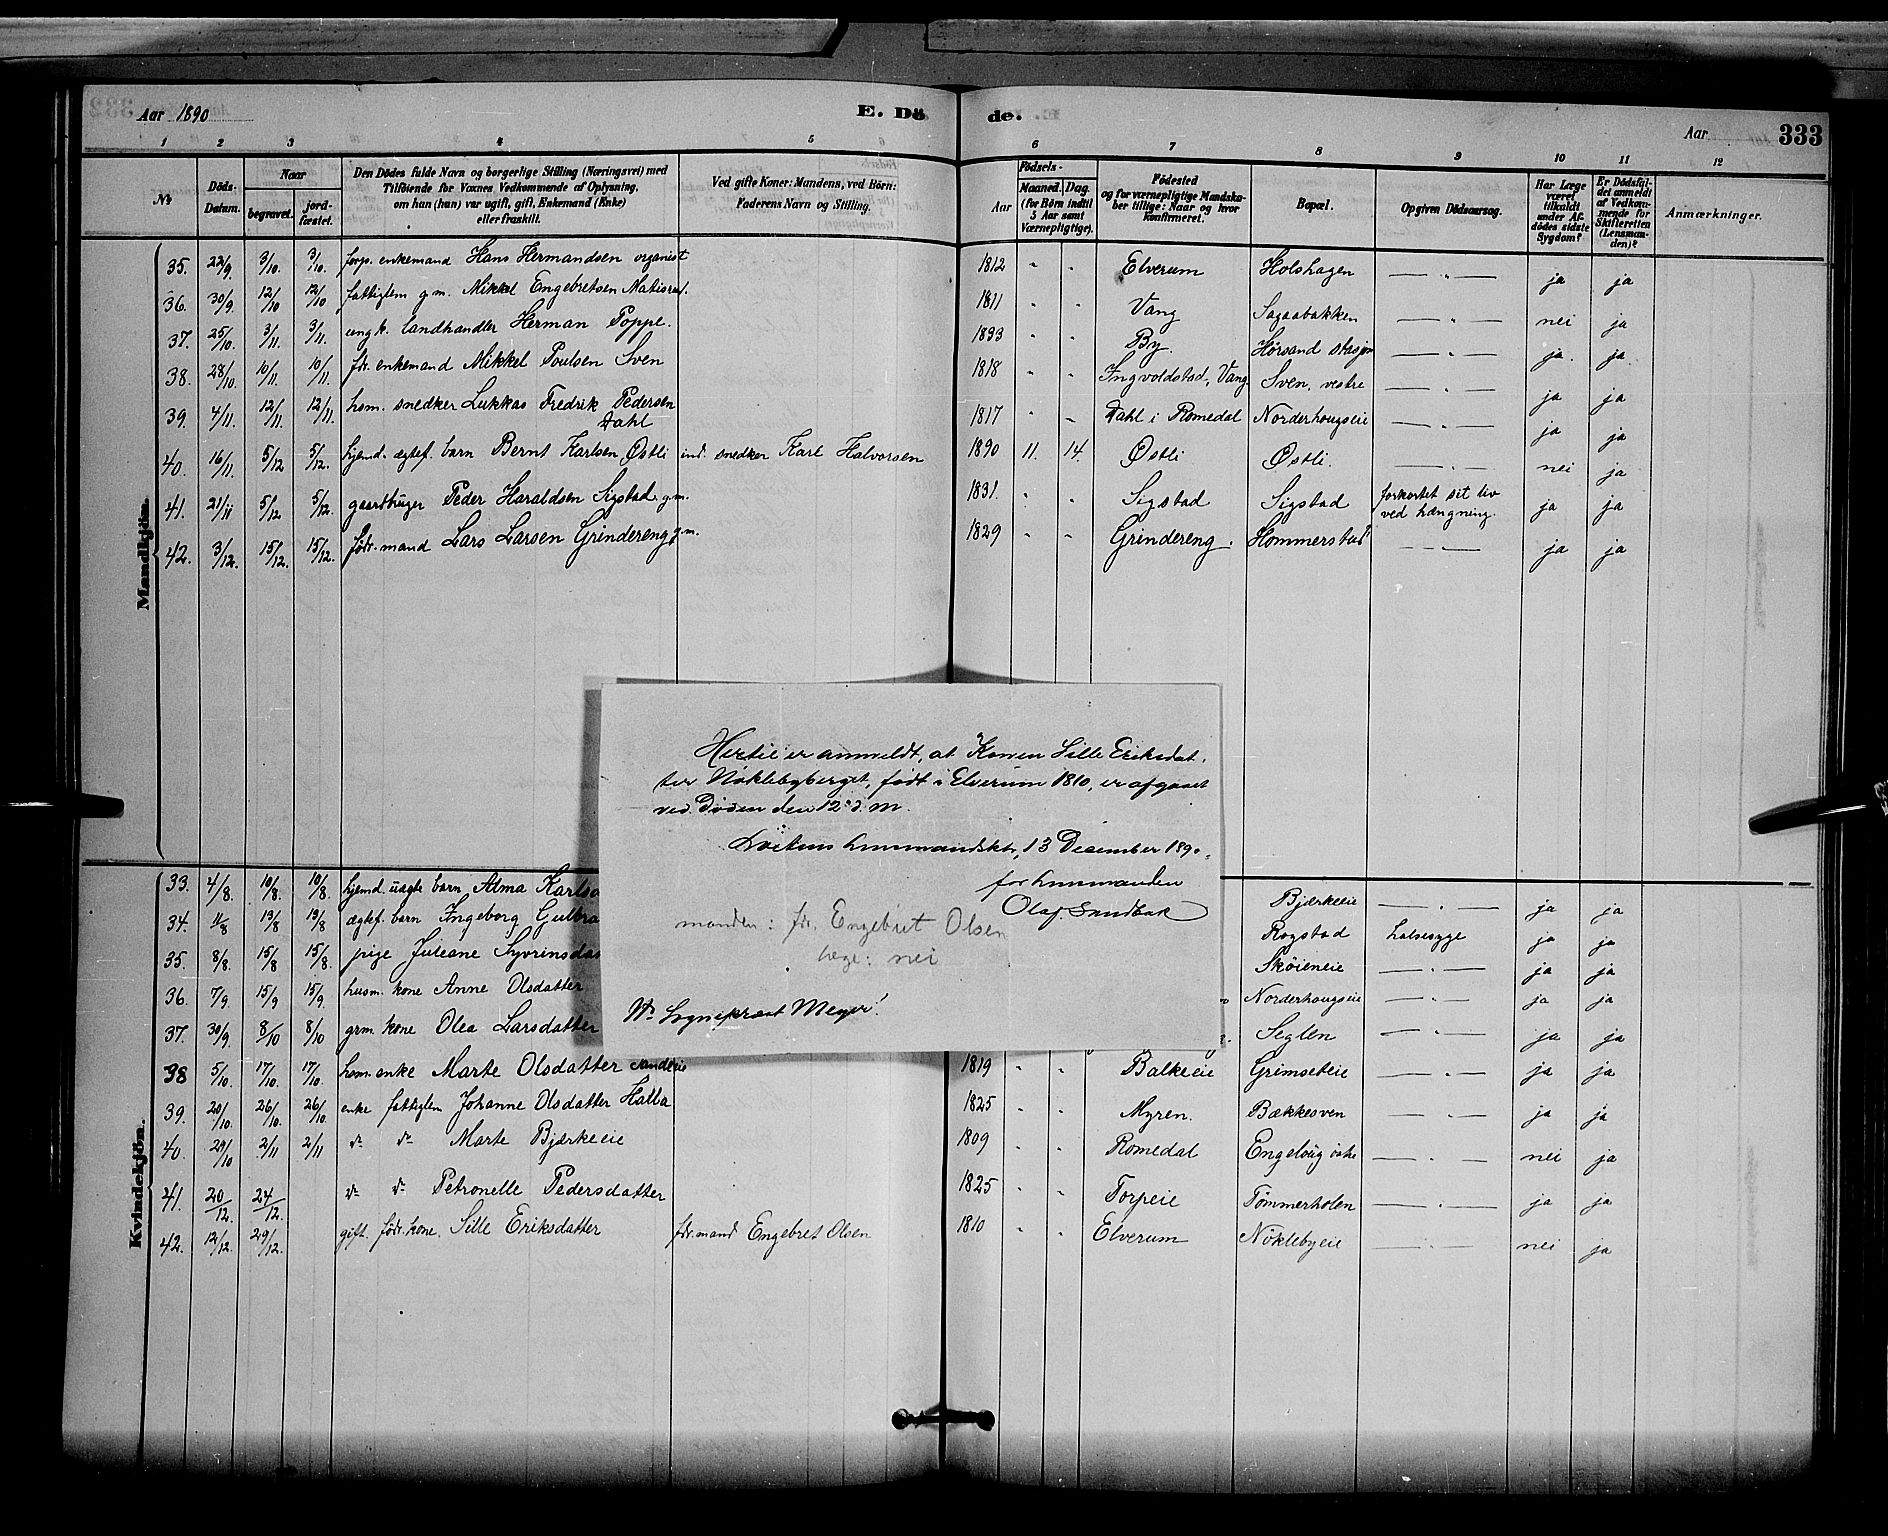 Aar 1890 E. Dö
1 2 3 4 5
№ Döds-Datum. Naar begravet. jordfæstet. Den Dödes fulde Navn og borgerlige Stilling (Næringsvei) med Tilföiende for Voxnes Vedkommende af Oplysning, om han (hun) var ugift, gift, Enkemand (Enke) eller fraskilt. Ved gifte Koner: Mandens, ved Börn: Faderens Navn og Stilling.
de. Aar 333
6 7 8 9 10 11 12
Födsels- Aar Maaned. Dag. (for Börn indtil 5 Aar samt Værnepligtige). Födested og for værnepligtige Mandskaber tillige: Naar og hvor konfirmeret. Bopæl. Opgiven Dödsaarsag. Har Læge været tilkaldt under Afdödes sidste Sygdom? Er Dödsfaldet anmeldt af Vedkommende for Skifteretten (Lensmanden)? Anmærkninger.
Mandkjön.
35. 22/9 3/10. 3/10. forps. enkemand Hans Hermandsen organist 1812 " " Elverum Holshagen — " — ja ja
36. 30/9 12/10 12/10 fattiglem g.m. Mikkel Engebretsen 1811 " " Vang Sagaabakken — " — nei ja
37. 25/10 3/11. 3/11. ungk. landhandler Herman Poppe. 1833 " " By. Hørsand stasjon — " — ja. ja.
38. 28/10. 10/11. 10/11. fdr. enkemand Mikkel Poulsen Sven 1818 " " Ingvoldstad, Vang Sven, vestre — " — ja ja
39. 4/11. 12/11. 12/11. hsm. snedker Lukkas Fredrik Pedersen 1817 " " Dahl i Romedal Norderhougseie — " — ja ja
Dahl
40. 16/11. 5/12 5/12. hjemd. ægtef. barn Bernt Karlsen Østli ind. snedker Karl Halvorsen 1890 11. 14. Østli Østli. — " — nei ja
41. 21/11 5/12 5/12. gaardbruger Peder Haraldsen Sigstad g.m. 1831. " " Sigstad Sigstad forkortet sit liv ja ja
ved hængning.
42. 3/12. 15/12. 15/12. födr. mand Lars Larsen Grindereng g.m. 1829 " " Grindereng. Hommerstad — " — ja ja
Hertil er anmeldt, at Konen Sille Eriksdat-
ter Nøklebyberget, født i Elverum 1810, er afgaaet
ved Døden den 12 d. M.
Løitens Lensmandsktr, 13 December 1890.
for Lensmanden
Olaf Sandbak
manden: fdr. Engebret Olsen
læge: nei
Hr. Sognepræst Meyer!
Kvindekjön.
33. 4/8. 10/8. 10/8. hjemd. uægte barn Alma Karls Bjærkeeie — " — ja ja
34. 11/8 19/8 19/8 ægtef. barn Ingeborg Gulbra Rogstad halsesyge ja ja
35. 8/8. 15/8 15/8. pige Juleane Syvrinsdat Skøieneie — " — ja ja
36. 7/9. 15/9 15/9. husm. kone Anne Olsdatter Norderhougseie — " — ja ja
37. 30/9 8/10 8/10 grm. kone Olea Larsdatter Seglen — " — ja ja
38 5/10. 17/10. 17/10. hsm. enke Marte Olsdatter 1819 " " Balkeeie Grimseteie — " — ja ja
39. 20/10. 26/10. 26/10 enke fattiglem Johanne Olsdatter Halla 1825 " " Myren. Bækkesven — " — ja ja
40. 29/10 2/11 2/11 do do Marte Bjærkeeie 1809 " " Romedal Engeloug østre — " — nei ja
41. 20/12. 24/12. do do Petronelle Pedersdatter 1825 " " Torpeie Tømmerholen — " — ja ja
42. 12/12. 29/12. gift. födr. kone. Sille Eriksdatter fdr. mand Engebret Olsen 1810 " " Elverum Nöklebyeie — " — nei ja